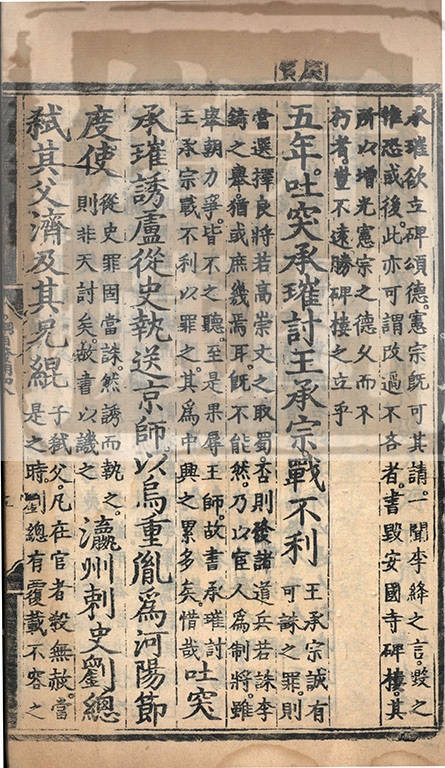 承璀欲立碑頌德。憲宗既可其請。一聞李絳之言。毀之
惟恐或後。此亦可謂改過不吝者。書毀安國寺碑樓。其
所以增光憲宗之德。久而不
朽者。豈不遠勝碑樓之立乎
五年。吐突承璀討王承宗戰不利
王承宗誠有
可誅之罪。則
當選擇良將若高崇文之取蜀。否則發諸道兵若誅李
錡之舉。猶或庶幾焉耳。既不能然。乃以宦人爲制將。雖
舉朝力爭。皆不之聽。至是果辱王師。故書承璀討
王承宗戰不利以罪之。其爲中興之累多矣。惜哉
吐突
承璀誘盧從史執送京師。以烏重胤爲河陽節
度使
從史罪固當誅。然誘而執之。
則非天討矣。故書以譏之
瀛州刺史劉總
弒其父濟及其兄緄
子弒父。凡在官者殺無赦。當
是之時。劉總有覆載不容之